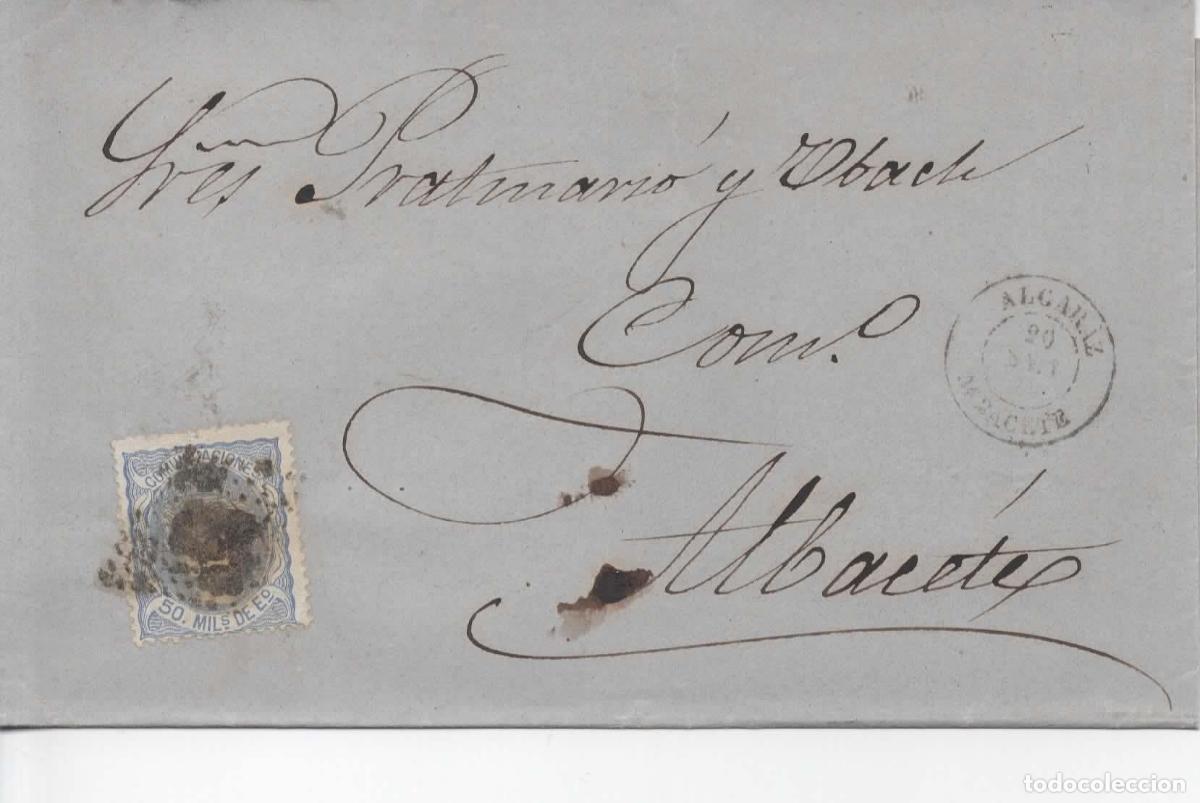 Sres Pratmarsó y Ubach
Com.o
Albacete
ALCARÁZ
20
ALBACETE
COMUNICACIONES
50. MILS. DE Eo
todocoleccion